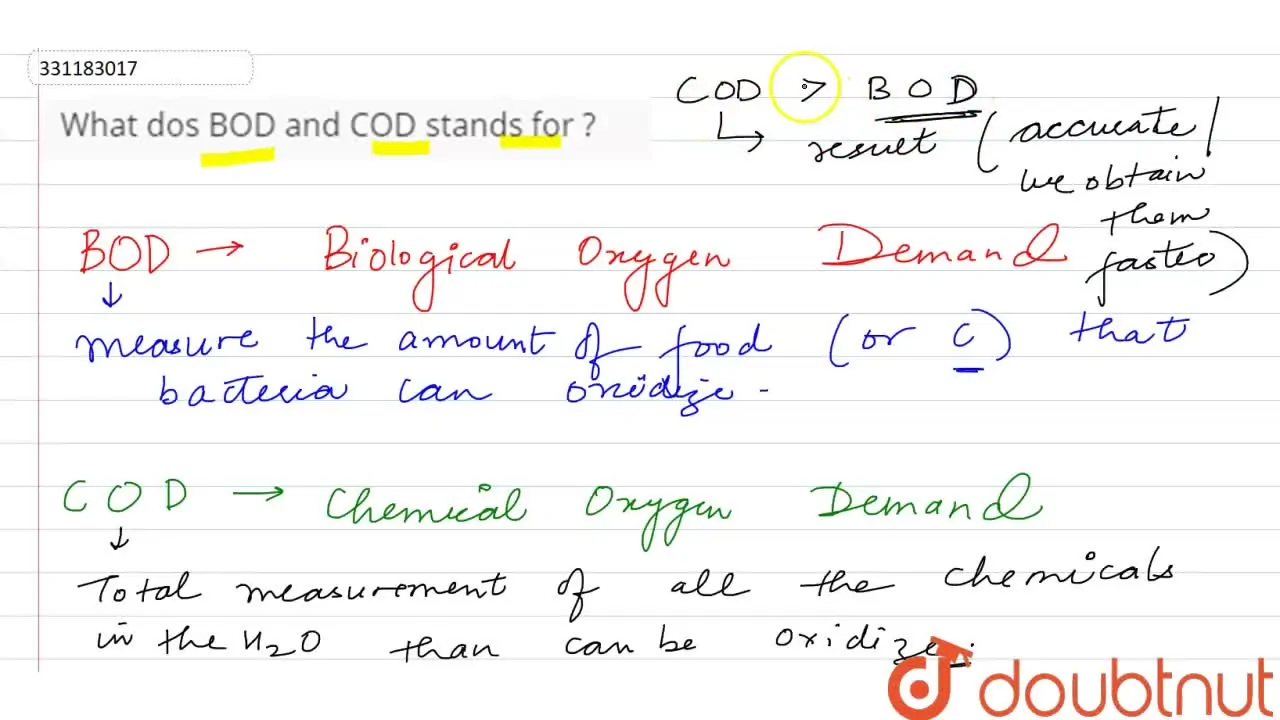 331183017
What dos BOD and COD stands for ?
COD > BOD
result (accurate/
we obtain
them
faster)
BOD → Biological Oxygen Demand
↓
measure the amount of food (or C) that
bacteria can oxidize -
COD → Chemical Oxygen Demand
↓
Total measurement of all the chemicals
in the H₂O than can be oxidize.
doubtnut